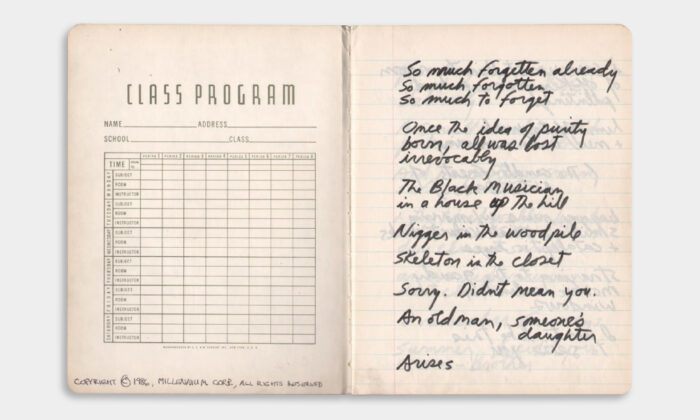 CLASS PROGRAM
NAME ADDRESS
SCHOOL CLASS
TIME PERIOD 1 PERIOD 2 PERIOD 3 PERIOD 4 PERIOD 5 PERIOD 6 PERIOD 7 PERIOD 8
MONDAY
SUBJECT
ROOM
INSTRUCTOR
TUESDAY
SUBJECT
ROOM
INSTRUCTOR
WEDNESDAY
SUBJECT
ROOM
INSTRUCTOR
THURSDAY
SUBJECT
ROOM
INSTRUCTOR
FRIDAY
SUBJECT
ROOM
INSTRUCTOR
SATURDAY
SUBJECT
ROOM
INSTRUCTOR
COPYRIGHT © 1986, MILLENNIUM CORE, ALL RIGHTS RESERVED
So much forgetten already
So much forgotten
So much to forget
Once the idea of purity
born, all was lost
irrevocably
The Black Musician
in a house up the hill
Nigger in the woodpile
Skeleton in the closet
Sorry. Didnt mean you.
An old man, someone's
daughter
Arises